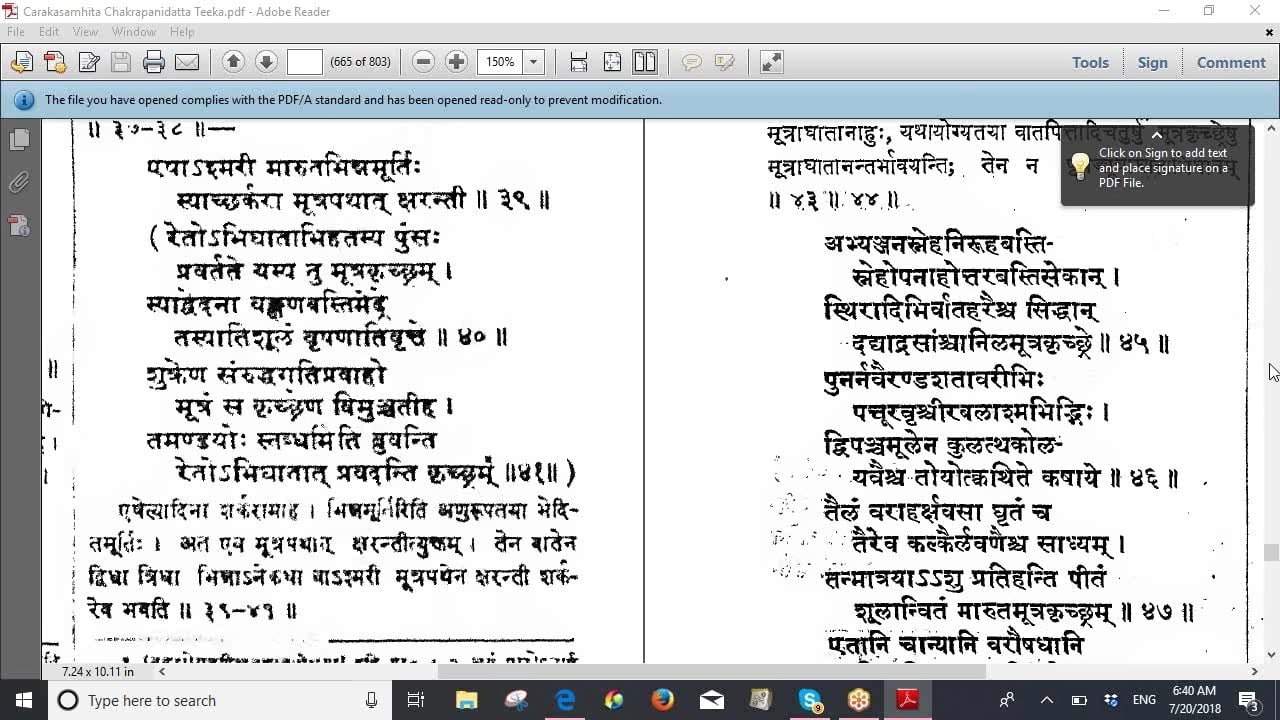 Carakasamhita Chakrapanidatta Teeka.pdf - Adobe Reader
File Edit View Window Help
(665 of 803) 150% Tools Sign Comment
The file you have opened complies with the PDF/A standard and has been opened read-only to prevent modification.
॥ ३७-३८ ॥—
एषाऽश्मरी मारुतभिन्नमूर्तिः
स्याच्छर्करा मूत्रपथात् क्षरन्ती ॥ ३९ ॥
(रेतोऽभिघाताभिहतस्य पुंसः
प्रवर्तते यस्य तु मूत्रकृच्छ्रम् ।
स्याद्वेदना
तस्यातिशूलं वृषणातिवृत्ते ॥ ४० ॥
शुक्रेण संरुद्धगतिप्रवाहो
मूत्रं स कृच्छ्रेण विमुञ्चतीह ।
तमण्डयोः स्तब्धमिति ब्रुवन्ति
रेतोऽभिघातात् प्रवदन्ति कृच्छ्रम् ॥४१॥ )
एषेत्यादिना शर्करामाह । भिन्नमूर्तिरिति अणुरूपतया भेदि-
तमूर्तिः । अत एव मूत्रपथात् क्षरन्तीत्युक्तम् । तेन वातेन
द्विधा त्रिधा भिन्नाऽनेकधा वाऽश्मरी मूत्रपथेन क्षरन्ती शर्क-
रेव भवति ॥ ३९-४१ ॥
मूत्राघातानाहुः, यथायोग्यतया वातपित्तादिचतुर्षु मूत्रकृच्छ्रेषु
मूत्राघातानन्तर्भावयन्ति; तेन न
॥ ४३ ॥ ४४ ॥
Click on Sign to add text
and place signature on a
PDF File.
अभ्यञ्जनस्नेहनिरूहबस्ति-
स्नेहोपनाहोत्तरबस्तिसेकान् ।
स्थिरादिभिर्वातहरैश्च सिद्धान्
दद्याद्रसांश्चानिलमूत्रकृच्छ्रे ॥ ४५ ॥
पुनर्नवैरण्डशतावरीभिः
पत्तूरवृश्चीरबलाश्मभिद्भिः ।
द्विपञ्चमूलेन कुलत्थकोल-
यवैश्च तोयोत्क्वथिते कषाये ॥ ४६ ॥
तैलं वराहर्क्षवसा घृतं च
तैरेव कल्कैर्लवणैश्च साध्यम् ।
तन्मात्रयाऽऽशु प्रतिहन्ति पीतं
शूलान्वितं मारुतमूत्रकृच्छ्रम् ॥ ४७ ॥
एतानि चान्यानि वरौषधानि
7.24 x 10.11 in
Type here to search
ENG
6:40 AM
7/20/2018